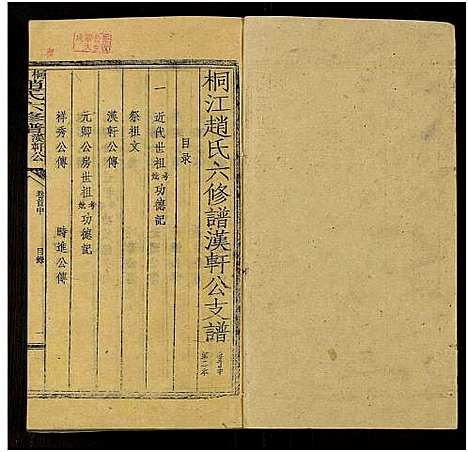 桐江趙氏六修譜漢軒公支譜
卷首中
第二本
目录
一
近代世祖考妣功德記
祭祖文
漢軒公傳
元卿公房世祖考妣功德記
祥秀公傳　時進公傳
桐江趙氏六修譜漢軒公
卷首中
目錄
一